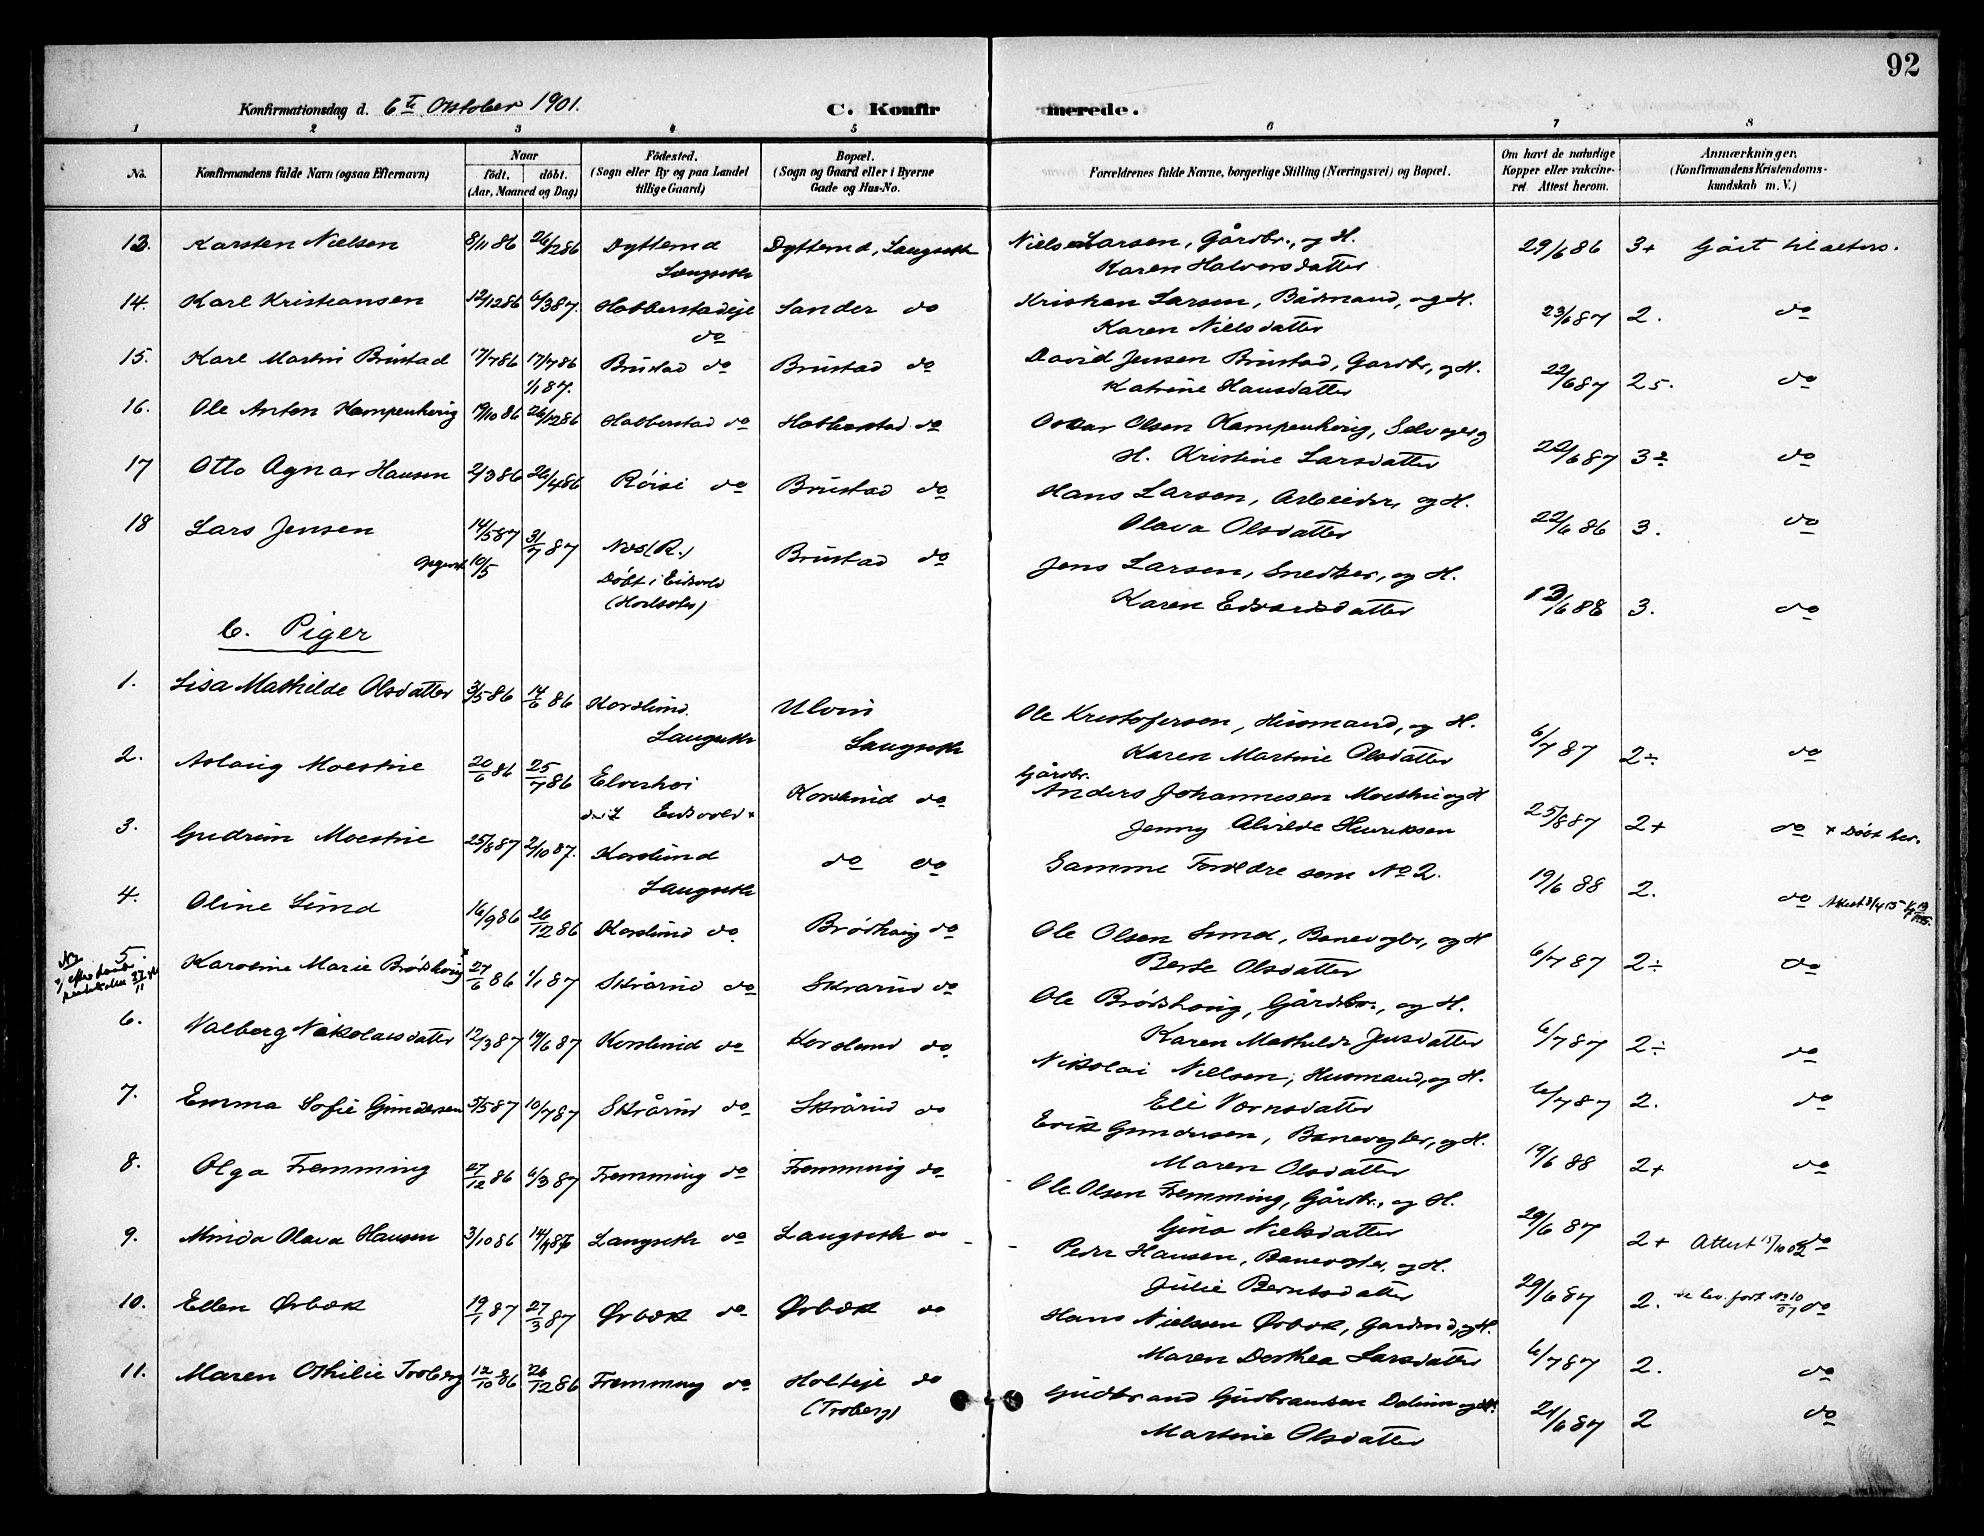 92
Konfirmationsdag d. 6te Oktober 1901.
C. Konfirmerede.
1 2 3 4 5 6 7 8
No.
Konfirmandens fulde Navn (ogsaa Efternavn)
Naar
født. døbt.
(Aar, Maaned og Dag)
Fødested.
(Sogn eller By og paa Landet
tillige Gaard)
Bopæl.
(Sogn og Gaard eller i Byerne
Gade og Hus-No.
Forældrenes fulde Navne, borgerlige Stilling (Næringsvei) og Bopæl.
Om havt de naturlige
Kopper eller vakcine-
ret. Attest herom.
Anmærkninger.
(Konfirmandens Kristendoms-
kundskab m. V.)
13. Karsten Nielsen 8/11 86 26/12 86 Dyttemd Dyttemd, Langseth Niels Larsen, Gårdbr., og H. 29/6 86 3+ Gået til alters.
Langseth Karen Halvorsdatter
14. Karl Kristiansen 12/12 86 6/3 87. Habberstadeje Sander do Kristian Larsen, Bådmand, og H. 23/6 87 2. do
do Karen Nielsdatter
15. Karl Martin Brustad 17/7 86 17/7 86 Brustad do Brustad do David Jensen Brustad, Gardbr., og H. 22/6 87 2 5. do
1/1 87. Katrine Hansdatter
16. Ole Anton Kampenhoug 19/10 86 26/12 86 Habberstad do Habberstad do Oskar Olsen Kampenhoug, Selveier og 22/6 87 do
H. Kristine Larsdatter
17 Otto Agnar Hansen 2/3 86 26/4 86 Røisi do Brustad do Hans Larsen, Arbeider, og H. 22/6 86 3. do
Olava Olsdatter
18 Lars Jensen 14/5 87 31/7 87 Nes (R.) Brustad do Jens Larsen, Snedker, og H. 13/6 88 3. do
opgivet 10/5 Døbt i Eidsvold Karen Edvardsdatter
b. Piger
1. Lisa Mathilde Olsdatter 3/5 86 14/6 86 Korslund Ulvin Ole Kristofersen, Husmand, og H. 6/7 87 2÷ do
Langseth Langseth Karen Martine Olsdatter
2. Aslaug Moestue 20/6 86 25/7 86 Elverhøi Korslund do Gårdbr. Anders Johannesen Moestue og H 25/8 87 2+ do + Døbt her.
Eidsvold+ Jenny Alvilde Henriksen
3. Gudrun Moestue 25/8 87 2/10 87. Korslund do do Samme Forældre som No 2. 19/6 88 2. do Attest 3/4 15
Langseth
4. Oline Lund 16/9 86 26/12 86 Korslund do Brødhoug do Ole Olsen Lund, Banevogter, og H 6/7 87 2÷ do
Berte Olsdatter
5. Karoline Marie Brødshoug 27/6 86 1/1 87 Skrårud do Skrarud do Ole Brødshoug, Gårdbr., og H. 6/7 87 2÷ do
Karen Mathilde Jensdatter
6. Valborg Nikolaisdatter 12/3 87 19/6 87 Korslund do Korslund do Nikolai Nielsen, Husmand, og H. 6/7 87 2. do
Eli Vornsdatter
7. Emma Sofie Gundersen 5/5 87 10/7 87 Skrårud do Skrårud do Erik Gundersen, Banevogter, og H. 19/6 88 2+ do
Maren Olsdatter
8. Olga Fremming 27/12 86 6/3 87 Fremming do Fremming do Ole Olsen Fremming, Gårdbr., og H. 29/6 87 2+ Attest 15/10 02 do
Gina Nielsdatter
9. Minda Olava Hansen 3/10 86 14/4 87 Langseth do Langseth do Peder Hansen, Banevogter, og H. 29/6 87 2. do
Julie Berntsdatter
10. Ellen Ørbæk 19/1 87 27/3 87 Ørbæk do Ørbæk do Hans Nielsen Ørbæk, Gardmd, og H. 6/7 87 2. do
Maren Dorthea Larsdatter
11. Maren Othilie Troberg 12/10 86 26/12 86 Fremming do Holteje do Gudbrand Gudbransen Dalium og H. 21/6 87 2 do
(Troberg) Martine Olsdatter